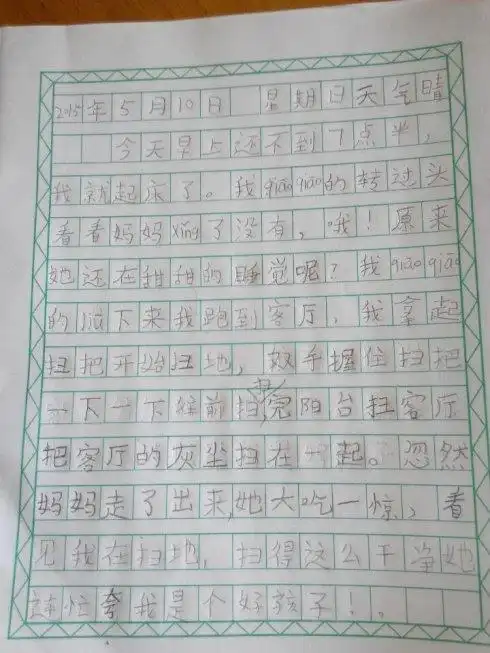 2015年5月10日 星期日天气晴
今天早上还不到7点半，
我就起床了。我qiāoqiāo的转过头
看看妈妈xǐng了没有，哦！原来
她还在甜甜的睡觉呢？我qiāoqiāo
的liū下来我跑到客厅，我拿起
扫把开始扫地，双手握住扫把
一下一下往前扫完阳台扫客厅
把客厅的灰尘扫在一起。忽然
妈妈走了出来，她大吃一惊，看
见我在扫地，扫得这么干净她
连忙夸我是个好孩子！。